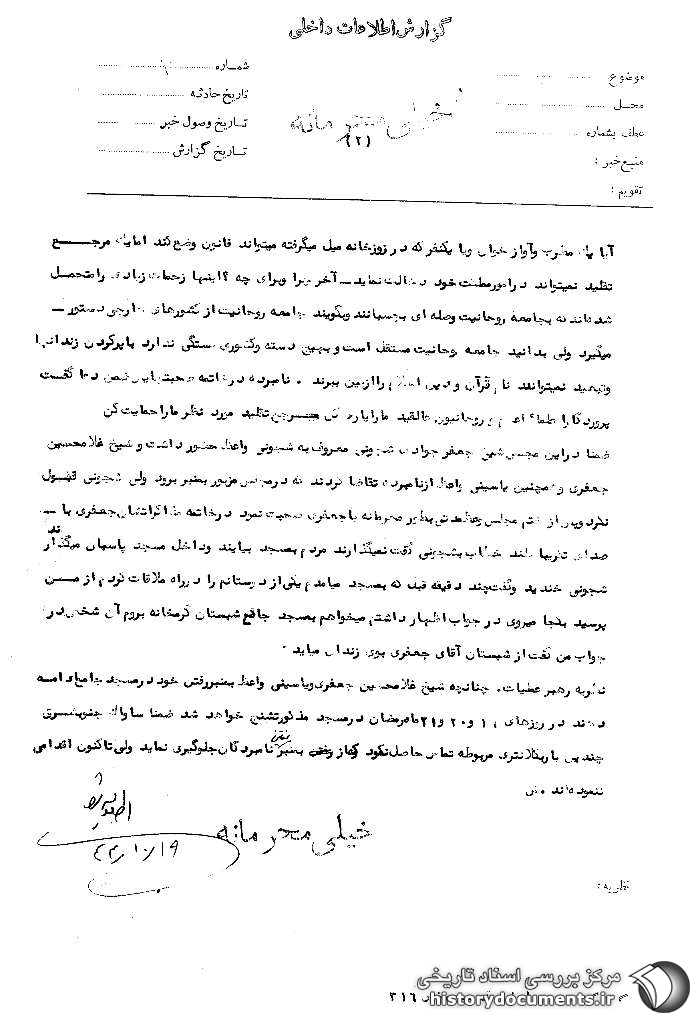 گزارش اطلاعات داخلی
موضوع
محل
عطف بشماره
منبع خبر :
تقویم :
شماره
تاریخ حادثه
تاریخ وصول خبر
تاریخ گزارش
خیلی محرمانه
(۲)
آیا یک مطرب وآواز خوان ویا یکنفر که در زورخانه میل میگرفته میتواند قانون وضع کند اما یک مرجع
تقلید نمیتواند در امور مملکت خود دخالت نماید ـ آخر چرا وبرای چه ؟ اینها زحمات زیادی را متحمل
شده‌اند که بجامعه روحانیت وصله ای بچسبانند وبگویند جامعه روحانیت از کشورهای خارجی دستور ـ
میگیرد ولی بدانید جامعه روحانیت مستقل است و بهیچ دسته وکشوری بستگی ندارد با پرکردن زندانها
وتبعید نمیتوانند نام قرآن و دین اسلام را از بین ببرند . نامبرده در خاتمه صحبتهایش ضمن دعا گفت
پروردگارا علماء اعلام و روحانیون مراجع تقلید مورد نظر ما را حمایت کن
ضمنا در این مجلس شیخ جعفر جوادی شجونی معروف به شجونی واعظ حضور داشت و شیخ غلامحسین
جعفری و همچنین یاسینی واعظ از نامبرده تقاضا کردند که در مجلس مزبور بمنبر برود ولی شجونی قبول
نکرد وپس از ختم مجلس بطور محرمانه با جعفری صحبت نمود در خاتمه مذاکراتشان جعفری با ـ
صدای تقریبا بلند خطاب بشجونی گفت نمیگذارند مردم بمسجد بیایند وداخل مسجد پاسبان میگذارند
شجونی خندید وگفت چند دقیقه قبل که بمسجد میامدم یکی از دوستانم را در راه ملاقات کردم از من
پرسید بکجا میروی در جواب اظهار داشتم میخواهم بمسجد جامع شبستان گرمخانه بروم آن شخص در
جواب من گفت از شبستان آقای جعفری بوی زندان میاید .
نظریه رهبر عملیات . چنانچه شیخ غلامحسین جعفری ویاسینی واعظ بمنبر رفتن خود در مسجد جامع ادامه
دهند در روزهای و ۲۰ و ۲۱ ماه رمضان در مسجد مذکور تشنج خواهد شد ضمنا ساواک جنوبشرق
چندین بار با کلانتری مربوطه تماس حاصل نمود که از رفتن بمنبر نامبردگان جلوگیری نماید ولی تاکنون اقدامی
ننموده‌اند .
خیلی محرمانه
۴۳/۱۰/۱۹
نظریه :
مرکز بررسی اسناد تاریخی
historydocuments.ir
۳۱۶